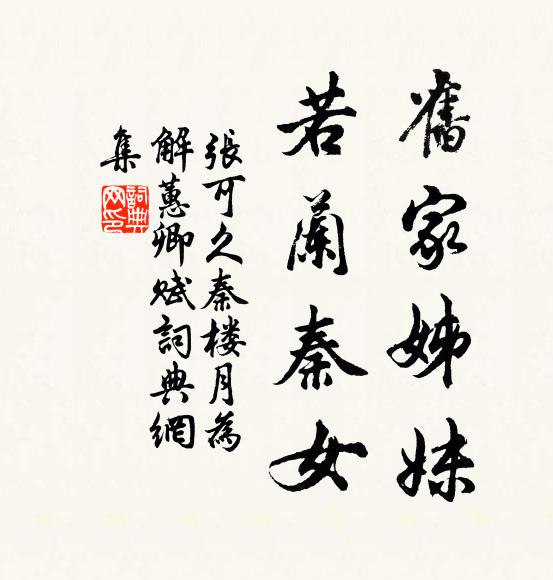 舊家姊妹
若蘭秦女
張可久秦楼月為
解蕙卿賦詞典網
集
詞典
网印